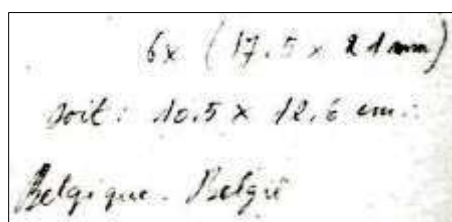 6x (17.5 x 21 mm)
soit : 10.5 x 12.6 cm.
Belgique - België